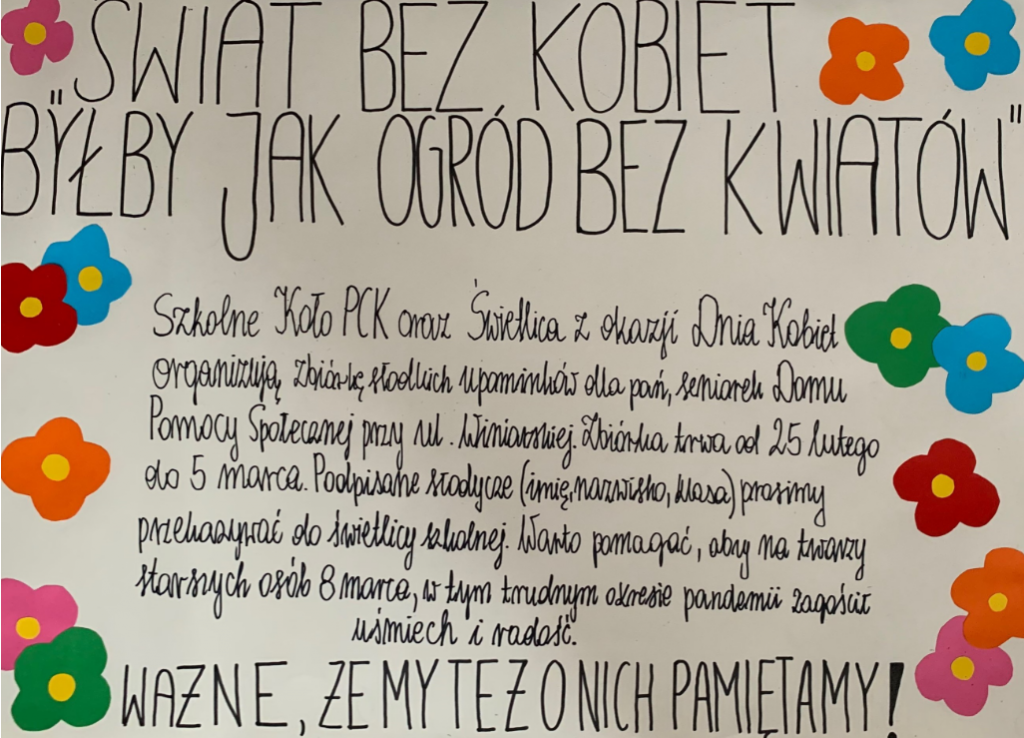 ŚWIAT BEZ KOBIET
"BYŁBY JAK OGRÓD BEZ KWIATÓW"
Szkolne Koło PCK oraz Świetlica z okazji Dnia Kobiet
organizują zbiórkę słodkich upominków dla pań, seniorek Domu
Pomocy Społecznej przy ul. Winiarskiej. Zbiórka trwa od 25 lutego
do 5 marca. Podpisane słodycze (imię, nazwisko, klasa) prosimy
przekazywać do świetlicy szkolnej. Warto pomagać, aby na twarzy
starszych osób 8 marca, w tym trudnym okresie pandemii zagościł
uśmiech i radość.
WAŻNE, ŻE MY TEŻ O NICH PAMIĘTAMY!